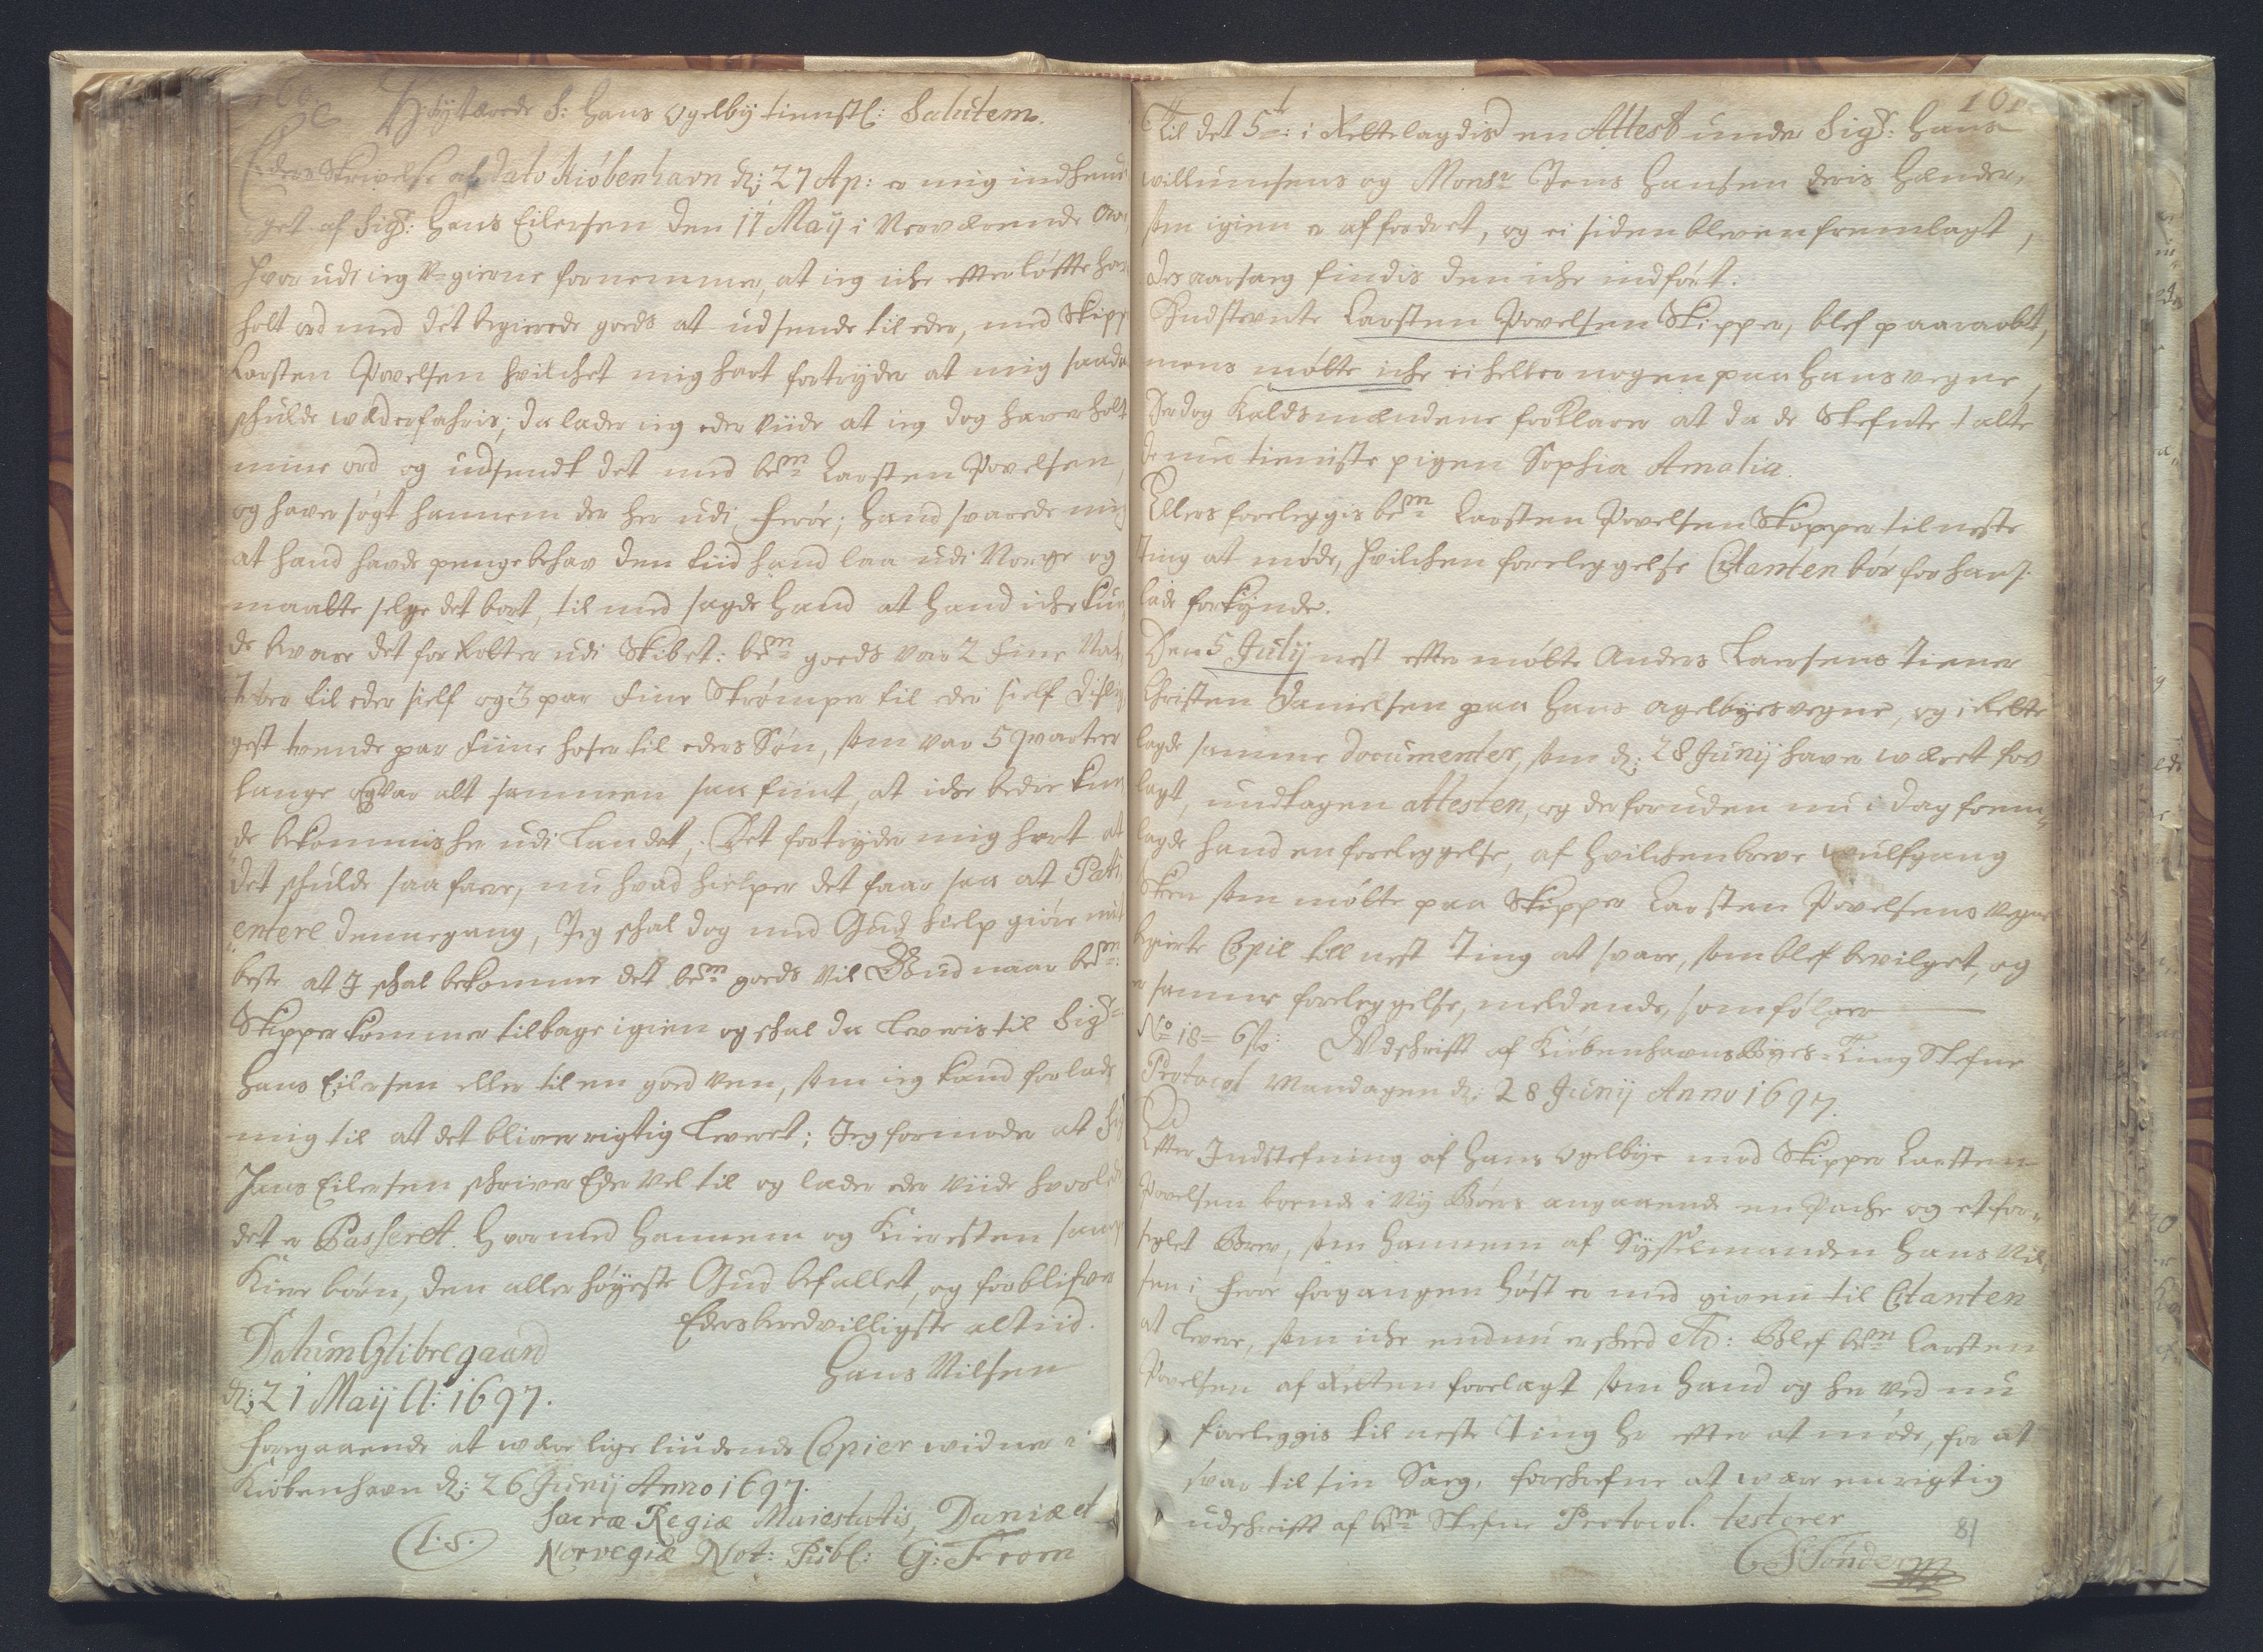 Høytærede S: Hans Ogelby tienstl: Salutem.
Eders Skrivelse af dato Kiøbenhavn dj 27 Ap: er mig indhend
get af Sigr: Hans Eilersen den 11 Maij i Nerværende
hvor udi ieg Ugierne fornemmer, at ieg iche efter løffte har
holt ord med det begierede goeds at udsende til eder, med Skipp
Carsten Povelsen hvilchet mig hart fortryder at mig saada
schulde wederfahris; da lader ieg eder viide at ieg dog haver holt
mine ord og udsendt det med bemte Carsten Povelsen,
og haver søgt hannem der her udi Ferøe; hand svarede mig
at hand hafde penge behov den tiid hand laa udi Norge og
maatte selge det bort, til med sagde hand at hand iche kun,
de bevare det for Rotter udi Skibet: bemte goeds var 2 fine Nat,
Trøer til eder self og 3 par fine Strømper til eder self disli
gest tvende par fiine hoser til eders Søn, som var 5 qvarteer
lange og var alt sammen saa fiint, at iche bedre kun,
de bekommis her udi Landet, Det fortryder mig hart at
det schulde saa fare, nu hvad hielper det faar saa at Pati,
entere dennegang, Jeg schal dog med Gud hielp giøre mit
beste at I schal bekomme det bemte goeds vil Gud naar bemte
Skipper kommer tilbage igien og schal da Leveris til Sigr:
Hans Eilersen eller til en goed ven, som ieg kand forlade
mig til at det bliver rigtig Leveret; Jeg formoder at Sigr
Hans Eilersen schriver Eder vel til og lader eder viide hvorled
det er Passeret. Hvormed hannem og Kieresten samt
Kiere børn, den aller høyeste Gud befallet, og forblifver
Eders beredvilligste altiid.
Datum Glibregaard
Hans Nilsen
dj 21 Maij A: 1697.
Foregaaende at were lige liudende Copier widner i
Kiøbenhavn dj 26 Junij Anno 1697.
Sacræ Regiæ Maiestatis, Daniæ et
(L.S.) Norvegiæ Not: Publ: G: From
101
Til det 5te: i Rettelagdis en Attest under Sigr: Hans
willumsens og Monsr Jens Hansen deris Hænder,
som igien er affordret, og ei siden bleven fremlagt,
des aarsag findis den iche indført.
Indstevnte Carsten Povelsen Skipper, blef paaraabt,
mens møtte iche ei heller nogen paa hans vegne,
Dog Kaldsmændene forklarer at da de Stefnte talte
de med tieniste pigen Sophia Amalia.
Ellers foreleggis bemte Carsten Povelsen Skipper til neste
Ting at møde, hvilchen foreleggelse Citanten bør for hans
lade forkynde.
Den 5 Julij nest efter møtte Anders Laersens Tiener
Christen Danielsen paa Hans Ogelbyes vegne, og i Rette
lagde samme Documenter, som dj 28 Junij haver wæret for
lagt, undtagen attesten, og der foruden nu i dag frem,
lagde hand en foreleggelse, af hvilchen breve Wulfgang
Steen som møtte paa Skipper Carsten Povelsens vegne
begierte Copie till nest Ting at svare, som blef bevilget, og
er samme foreleggelse, meldende, som følger
No 18 = 6 s: Udschrift af Kiøbenhavns Byes-Ting Stefne
Protocol Mandagen dj 28 Junij Anno 1697.
Efter Indstefning af Hans Ogelbye med Skipper Carsten
Povelsen boende i Ny Børs angaaende en Pache og et for,
seglet Brev, som hannem af Sysselmanden Hans Nil,
sen i Ferøe forgangen høst er med given til Citanten
at Levere, som iche endnu er scheed etc: Blef bemte Carsten
Povelsen af Retten forelagt som hand og her ved nu
foreleggis til neste Ting her efter at møde, for at
svar til sin Sag, forschrefne at were en rigtig
udschrifft af bemte Stefne Protocol. testerer
81
C S Tønder